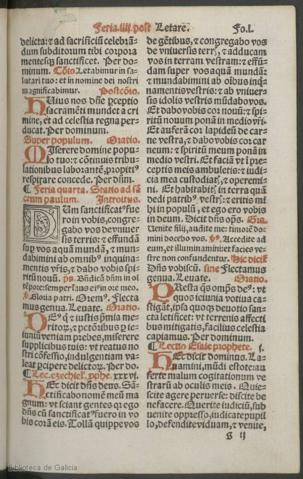 Feria.iiij.post Letare. Fo.l.
delicta: et ad sacrificiũ celebrã-
dum subditorum tibi corpora
mentesq; sanctificet. Per do-
minum. Cõio. Letabimur in sa-
lutari tuo: et in nomine dei nostri
magnificabimur. Postcõio.
Huius nos dñe pceptio
sacramẽti mundet a cri
mine, et ad celestia regna per-
ducat. Per dominum.
Super populum. Oratio.
Miserere domine popu
lo tuo: et cõtinuis tribu-
lationibus laborantẽ, propiti9
respirare concede. Per dñm.
Feria quarta. Statio ad sã
ctum paulum. Introitus.
Dum sanctificat9 fue
rom vobis, congre-
gabo vos de vniuer
sis terris: et effundã
sup vos aquã mundã, et mun-
dabimini ab omnib9 inquina-
mentis vris, et dabo vobis spi-
ritũ nouũ. ps. Bñdicã dñm in oĩ
tẽpore: semper laus ei9 in ore meo.
Gloria patri. Orem9. Flecta
mus genua. Leuate. Oratio.
Deus q; et iustis pmia me-
ritoꝝ, et pctõribus p ie-
iuniũ veniam prebes, miserere
supplicibus tuis: vt reatus no
stri cõfessio, indulgentiam va-
leat pcipere delictoꝝ. Per do.
Lec. ezechiel. pphe. xxxvi.
Hec dicit dñs deus. Sã-
ctificabo nomẽ meũ ma
gnum: vt sciant gentes q; ego
dñs cũ sanctificat9 fuero in vo
bis corã eis. Tollã quippe vos
de gẽtibus, et congregabo vos
de vniuersis terr, et adducam
vos in terram vestram: et effũ-
dam super vos aquã mundã:
et mundabimini ab oĩbus inq-
namentis vestris: et ab vniuer
sis idolis vestris mũdabo vos.
Et dabo vobis cor nouũ: et spi-
ritũ nouum ponã in medio vri.
Et auferã cor lapideũ de car-
ne vestra, et dabo vobis cor car
neum: et spiritũ meum ponã in
medio vestri. Et faciã vt ĩ pre-
ceptis meis ambuletis: et iudi-
cia mea custodiat, et operemi-
ni. Et habitabit in terra quã
dedi patrib9 vestris: et eritis mĩ
hi in populũ, et ego ero vobis
in deum. Dicit dñs ops. Gra.
Venite filij, audite me: timorẽ do-
mini docebo vos. Accedite ad
eum, et illuminamini: et facies ve-
stre non confundentur. Hic dicit
Dñs vobiscũ. sine Flectamus
genua. Leuate. Oratio.
Presta qs omps de9: vt
quos ieiunia votiua ca-
stigãt, ipsa quoq; deuotio san-
cta letificet: vt terrenis affecti
bus mitigatis, facilius celestia
capiamus. Per dominum.
Lectio Esaie prophete. j.
Hec dicit dominus. La-
uamini, mũdi estote: au
ferte malum cogitationum ve
strarũ ab oculis meis. Quie-
scite agere peruerse: discite be
nefacere. Querite iudiciũ, sub
uenite oppresso, iudicate pupil
lo, defendite viduam, et venite,
g ij
Biblioteca de Galicia